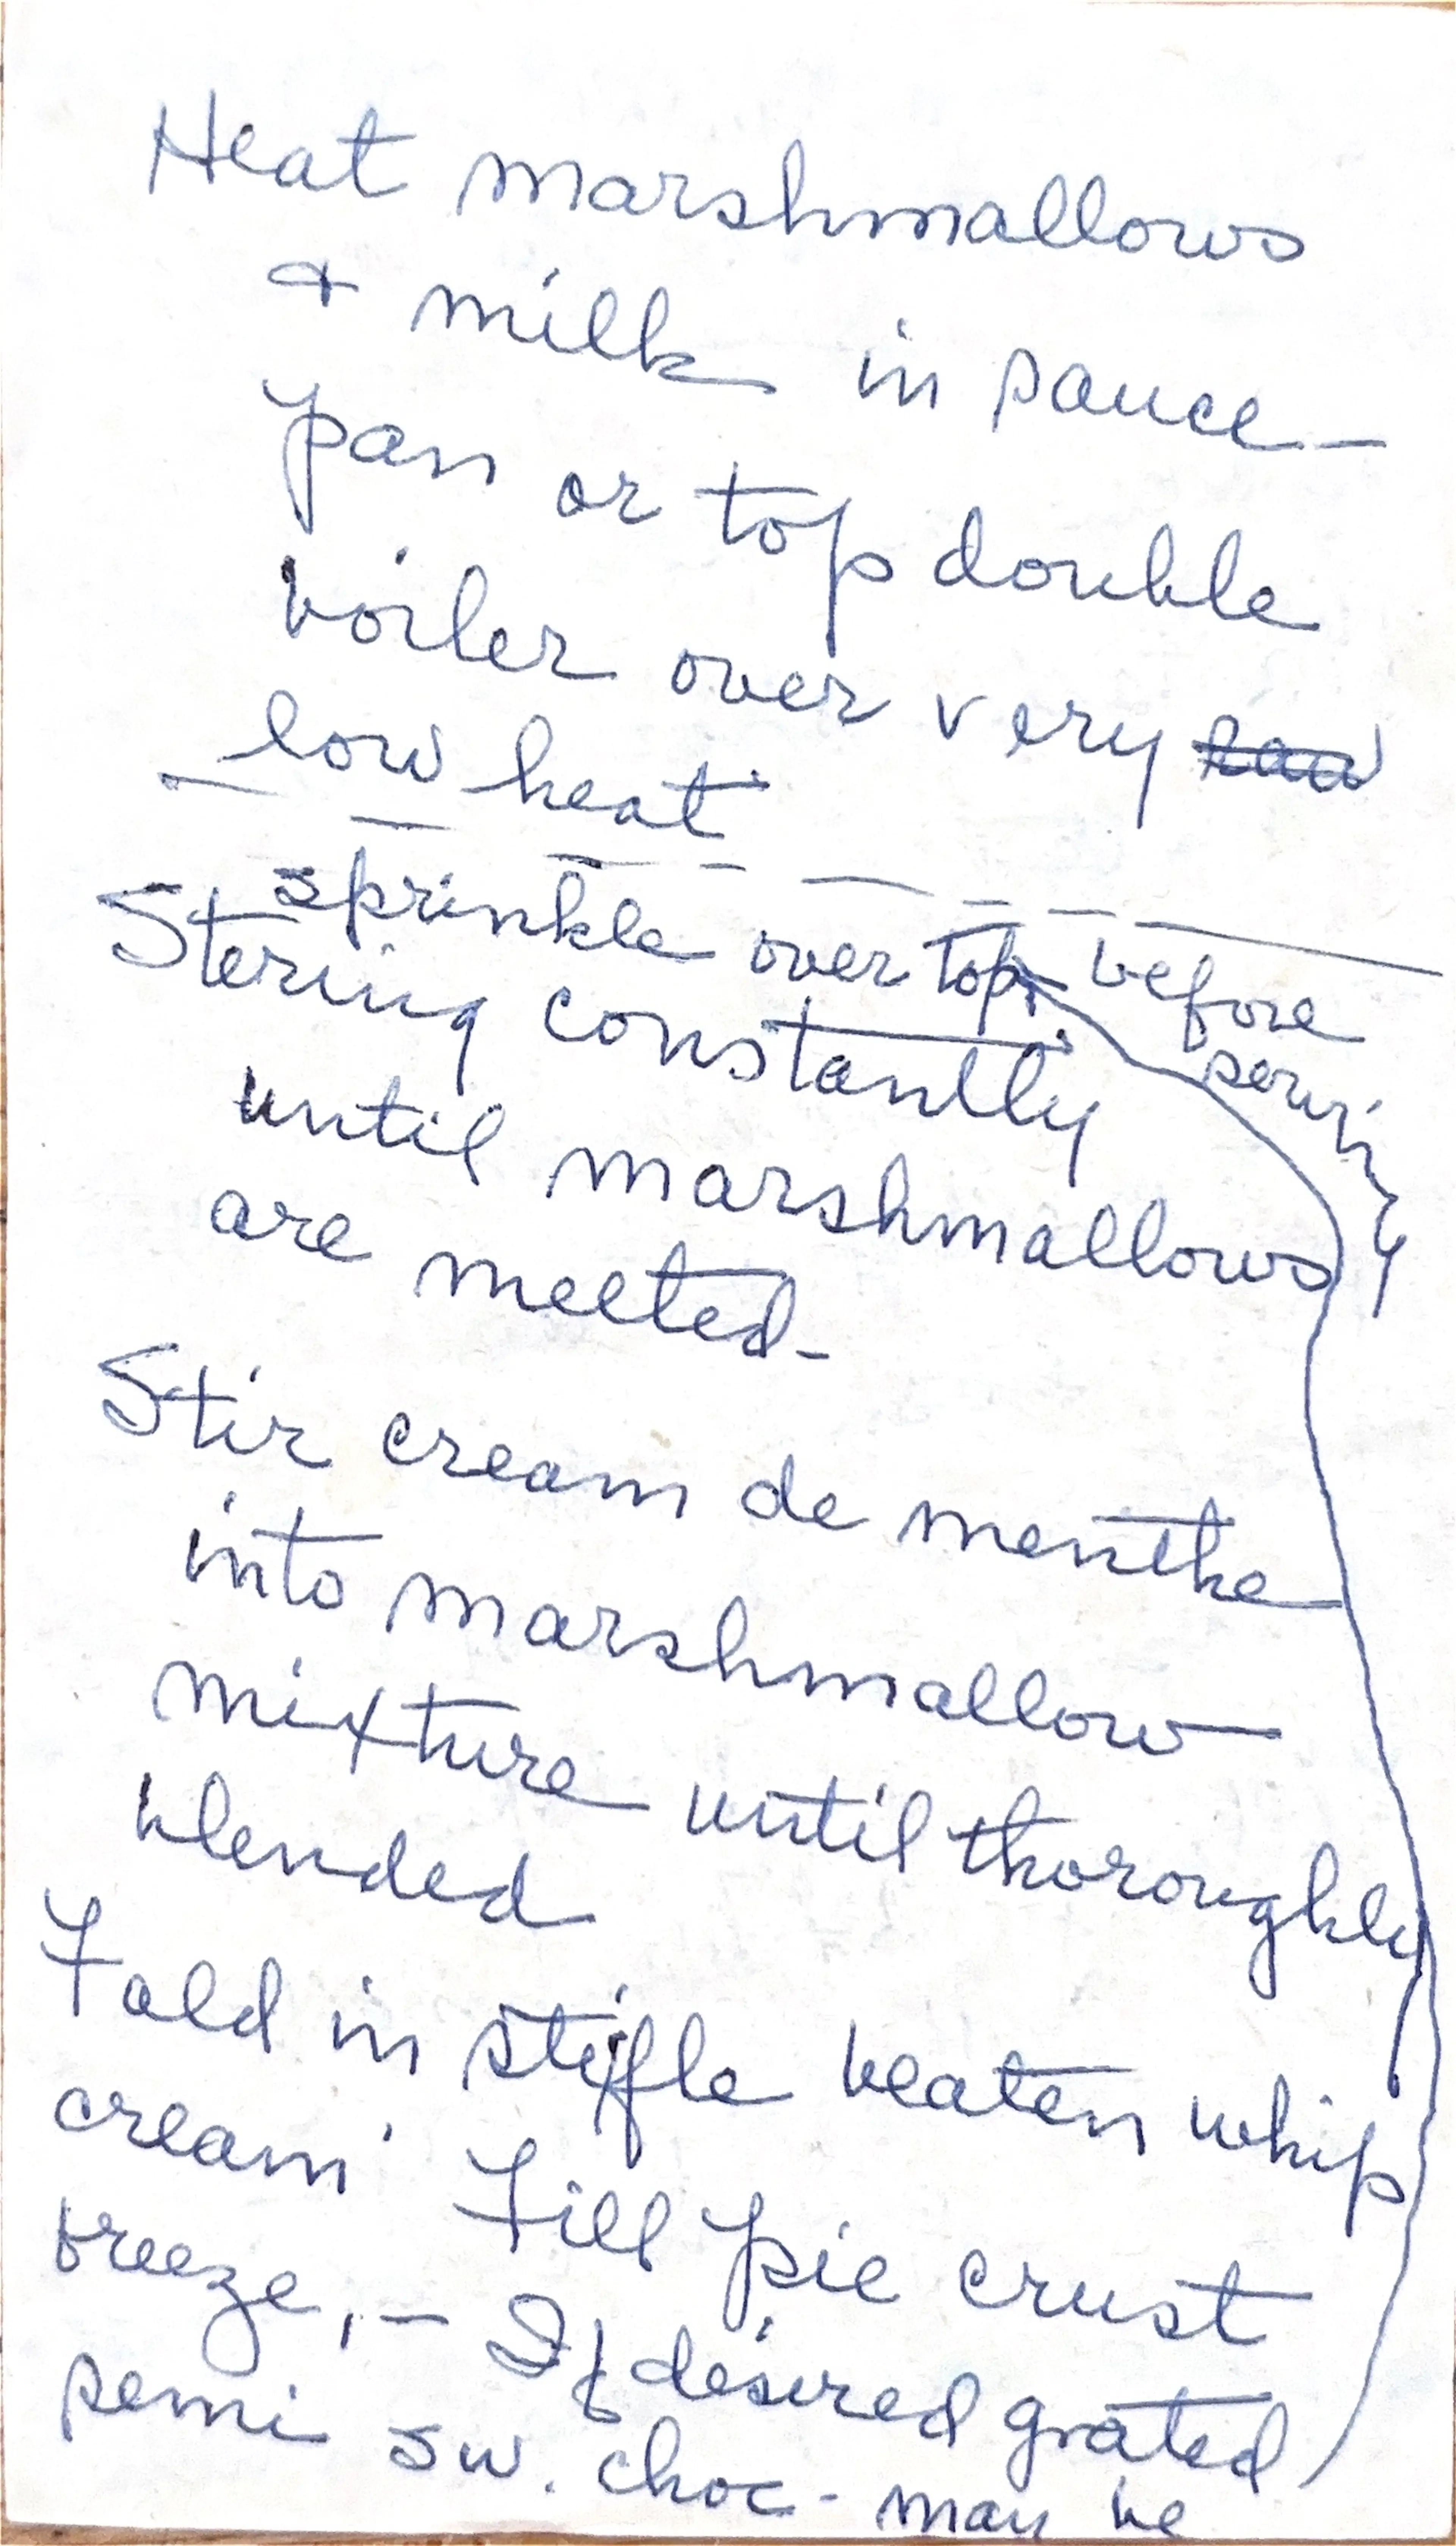 Heat marshmallows
+ milk in sauce-
pan or top double
boiler over very
low heat
sprinkle over top before
serving
Stering constantly
until marshmallows
are melted-
Stir cream de menthe
into marshmallow
mixture until thoroughly
blended
Fold in stifle beaten whip
cream. Fill pie crust
freeze, - If desired grated
semi sw. choc - may be